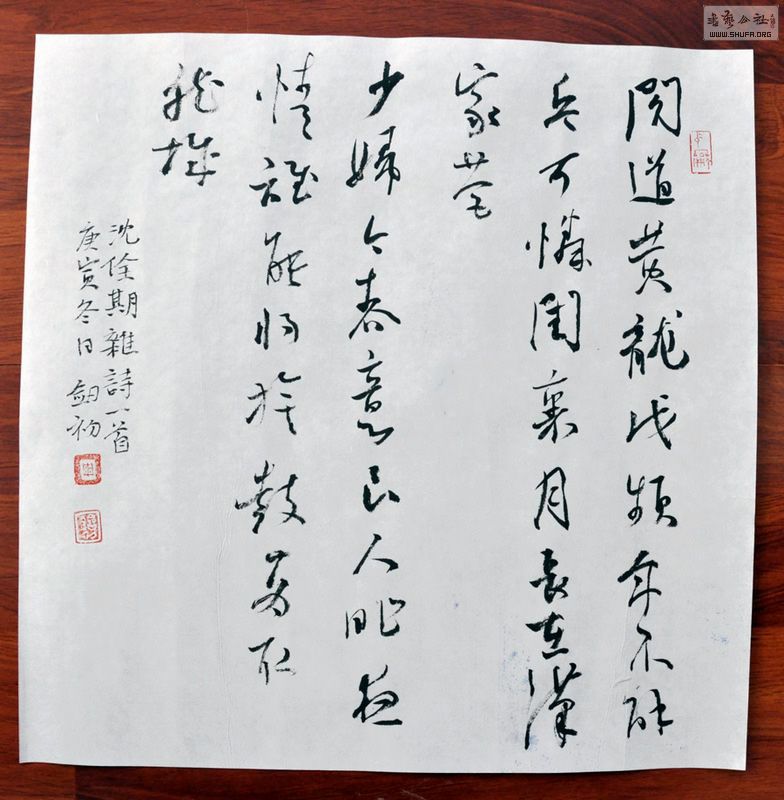 聞道黄龍戍頻年不解
兵可憐閨裏月長在漢
家營
少婦今春意良人昨夜
情誰能將旗鼓一為取
龍城
沈佺期雜詩一首
庚寅冬日 釼初
書藝公社
WWW.SHUFA.ORG